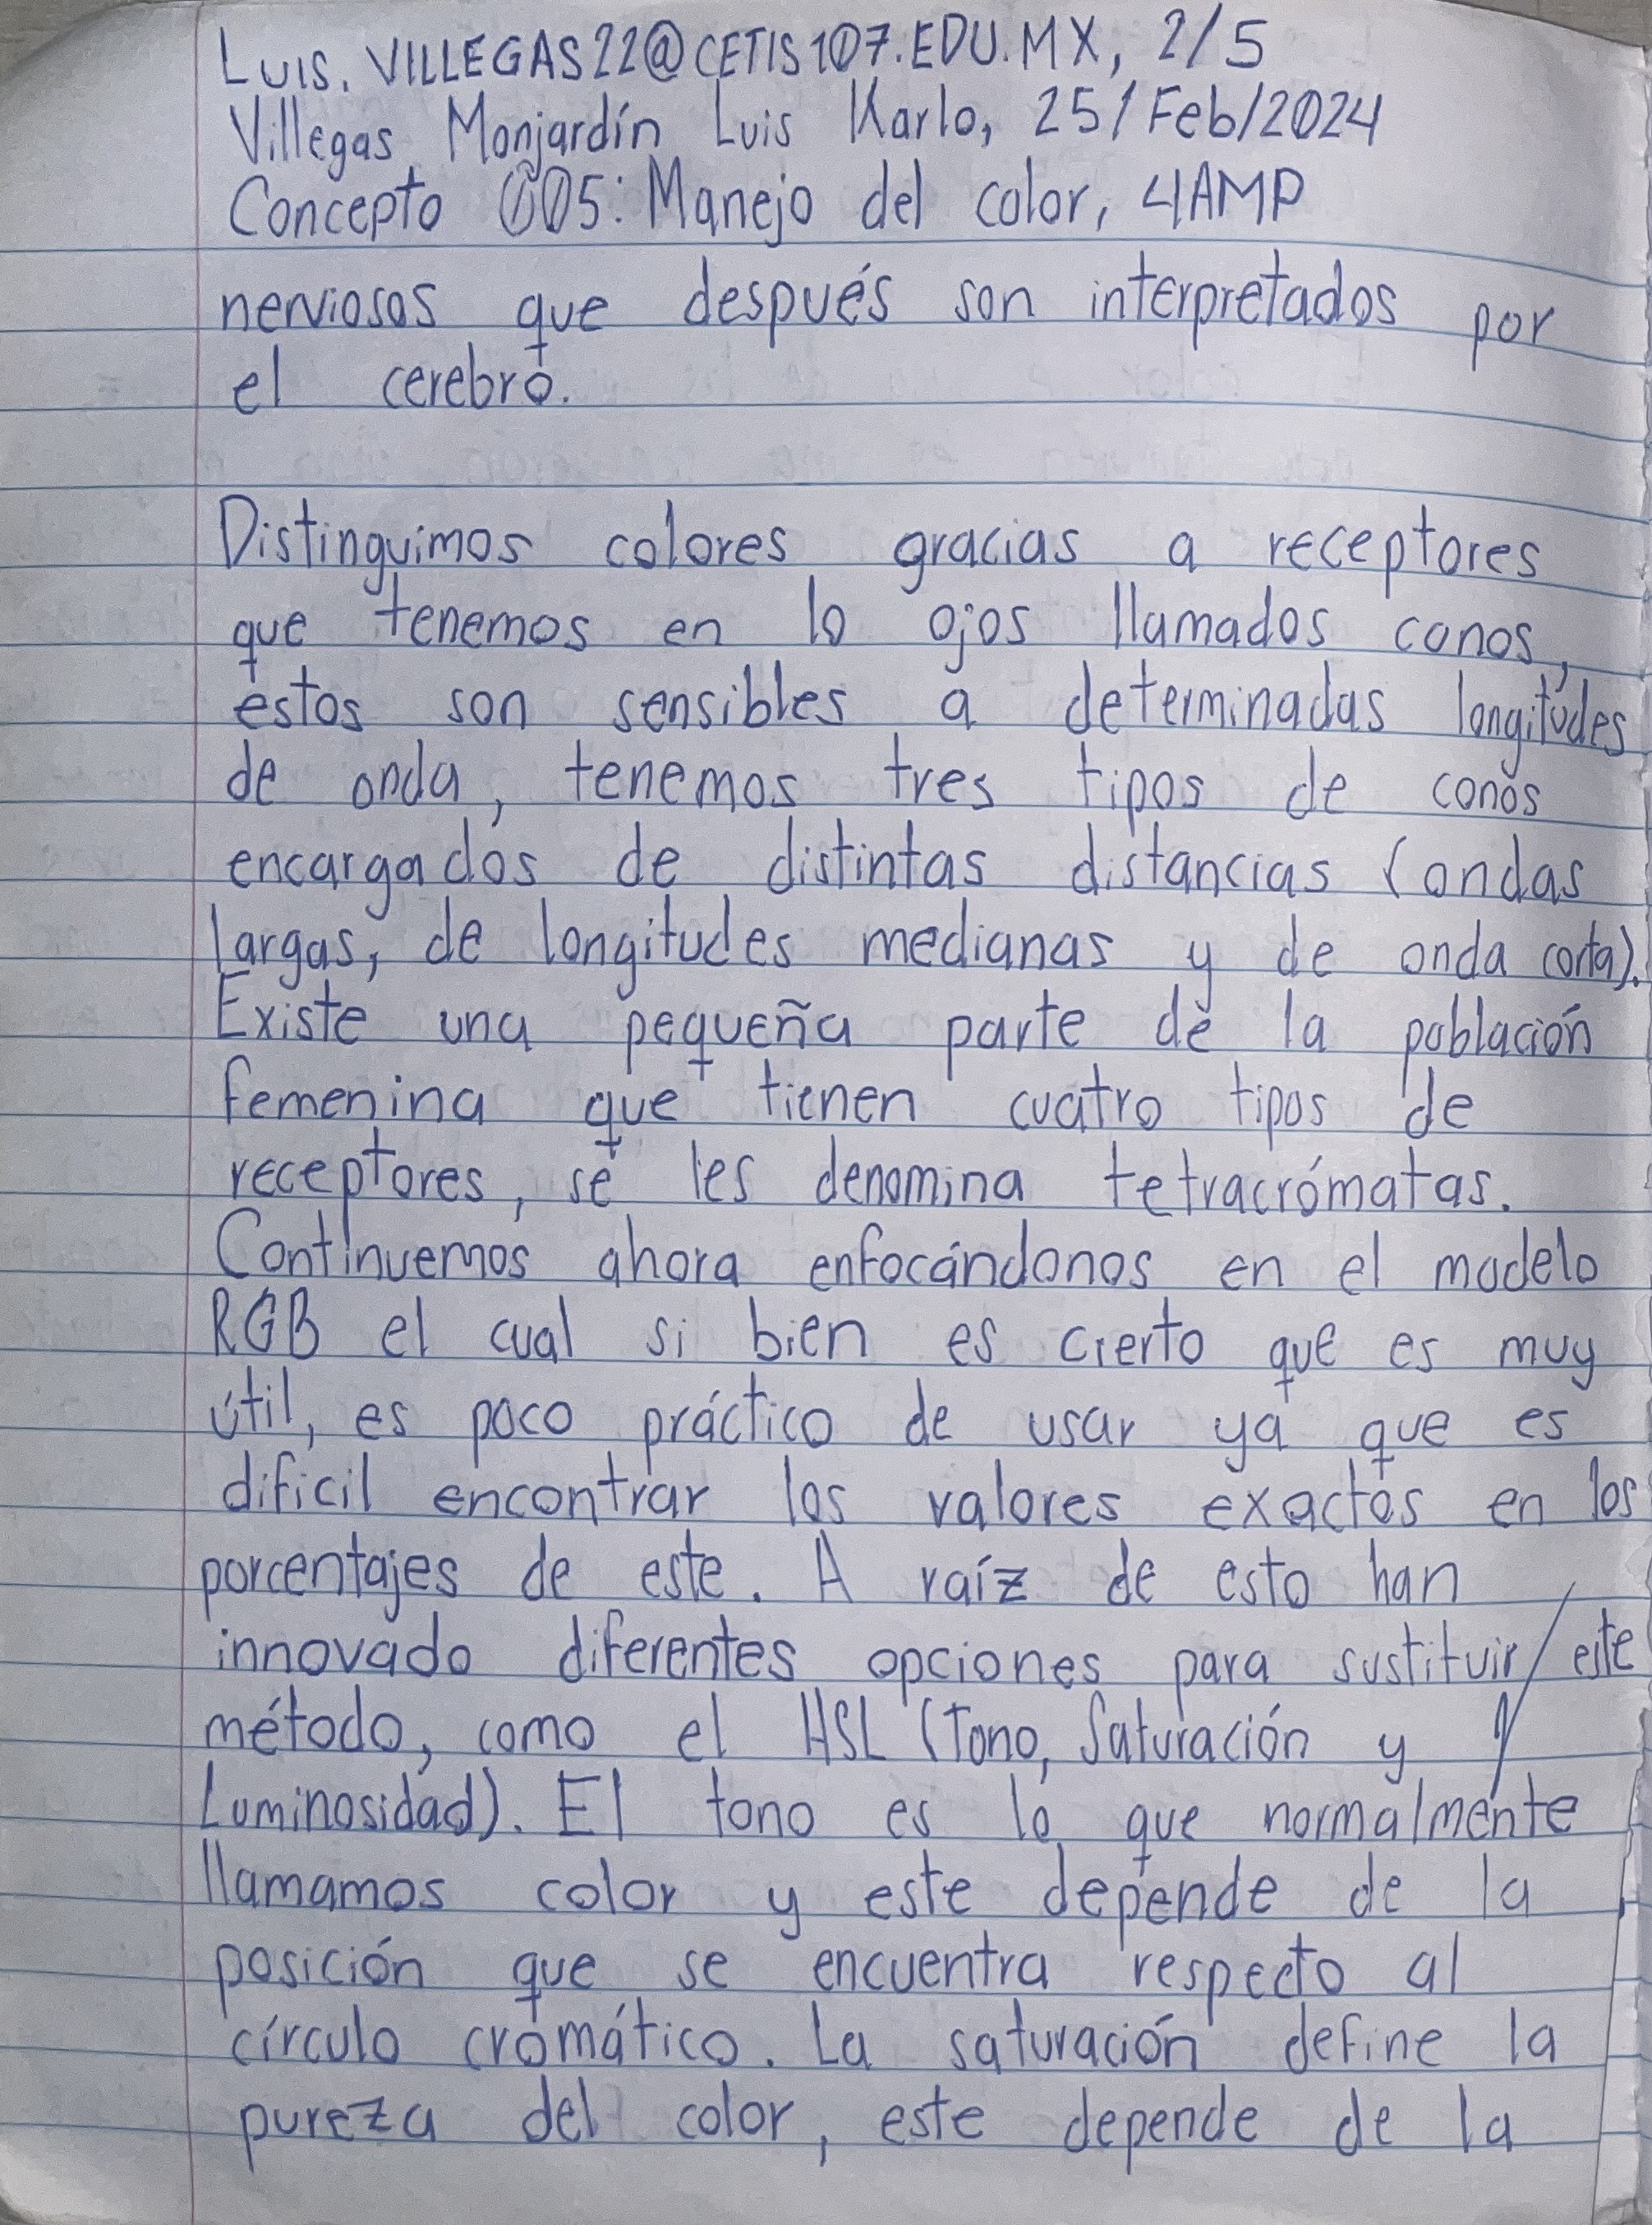 LUIS.VILLEGAS22@CETIS107.EDU.MX, 2/5
Villegas Monjardín Luis Karlo, 25/Feb/2024
Concepto 005: Manejo del color, 4AMP
nerviosos que después son interpretados por
el cerebro.
Distinguimos colores gracias a receptores
que tenemos en lo ojos llamados conos,
estos son sensibles a determinadas longitudes
de onda, tenemos tres tipos de conos
encargados de distintas distancias (ondas
largas, de longitudes medianas y de onda corta).
Existe una pequeña parte de la población
femenina que tienen cuatro tipos de
receptores, se les denomina tetracrómatas.
Continuemos ahora enfocándonos en el modelo
RGB el cual si bien es cierto que es muy
útil, es poco práctico de usar ya que es
dificil encontrar los valores exactos en los
porcentajes de este. A raíz de esto han
innovado diferentes opciones para sustituir este
método, como el HSL (Tono, Saturación y
Luminosidad). El tono es lo que normalmente
llamamos color y este depende de la
posición que se encuentra respecto al
círculo cromático. La saturación define la
pureza del color, este depende de la